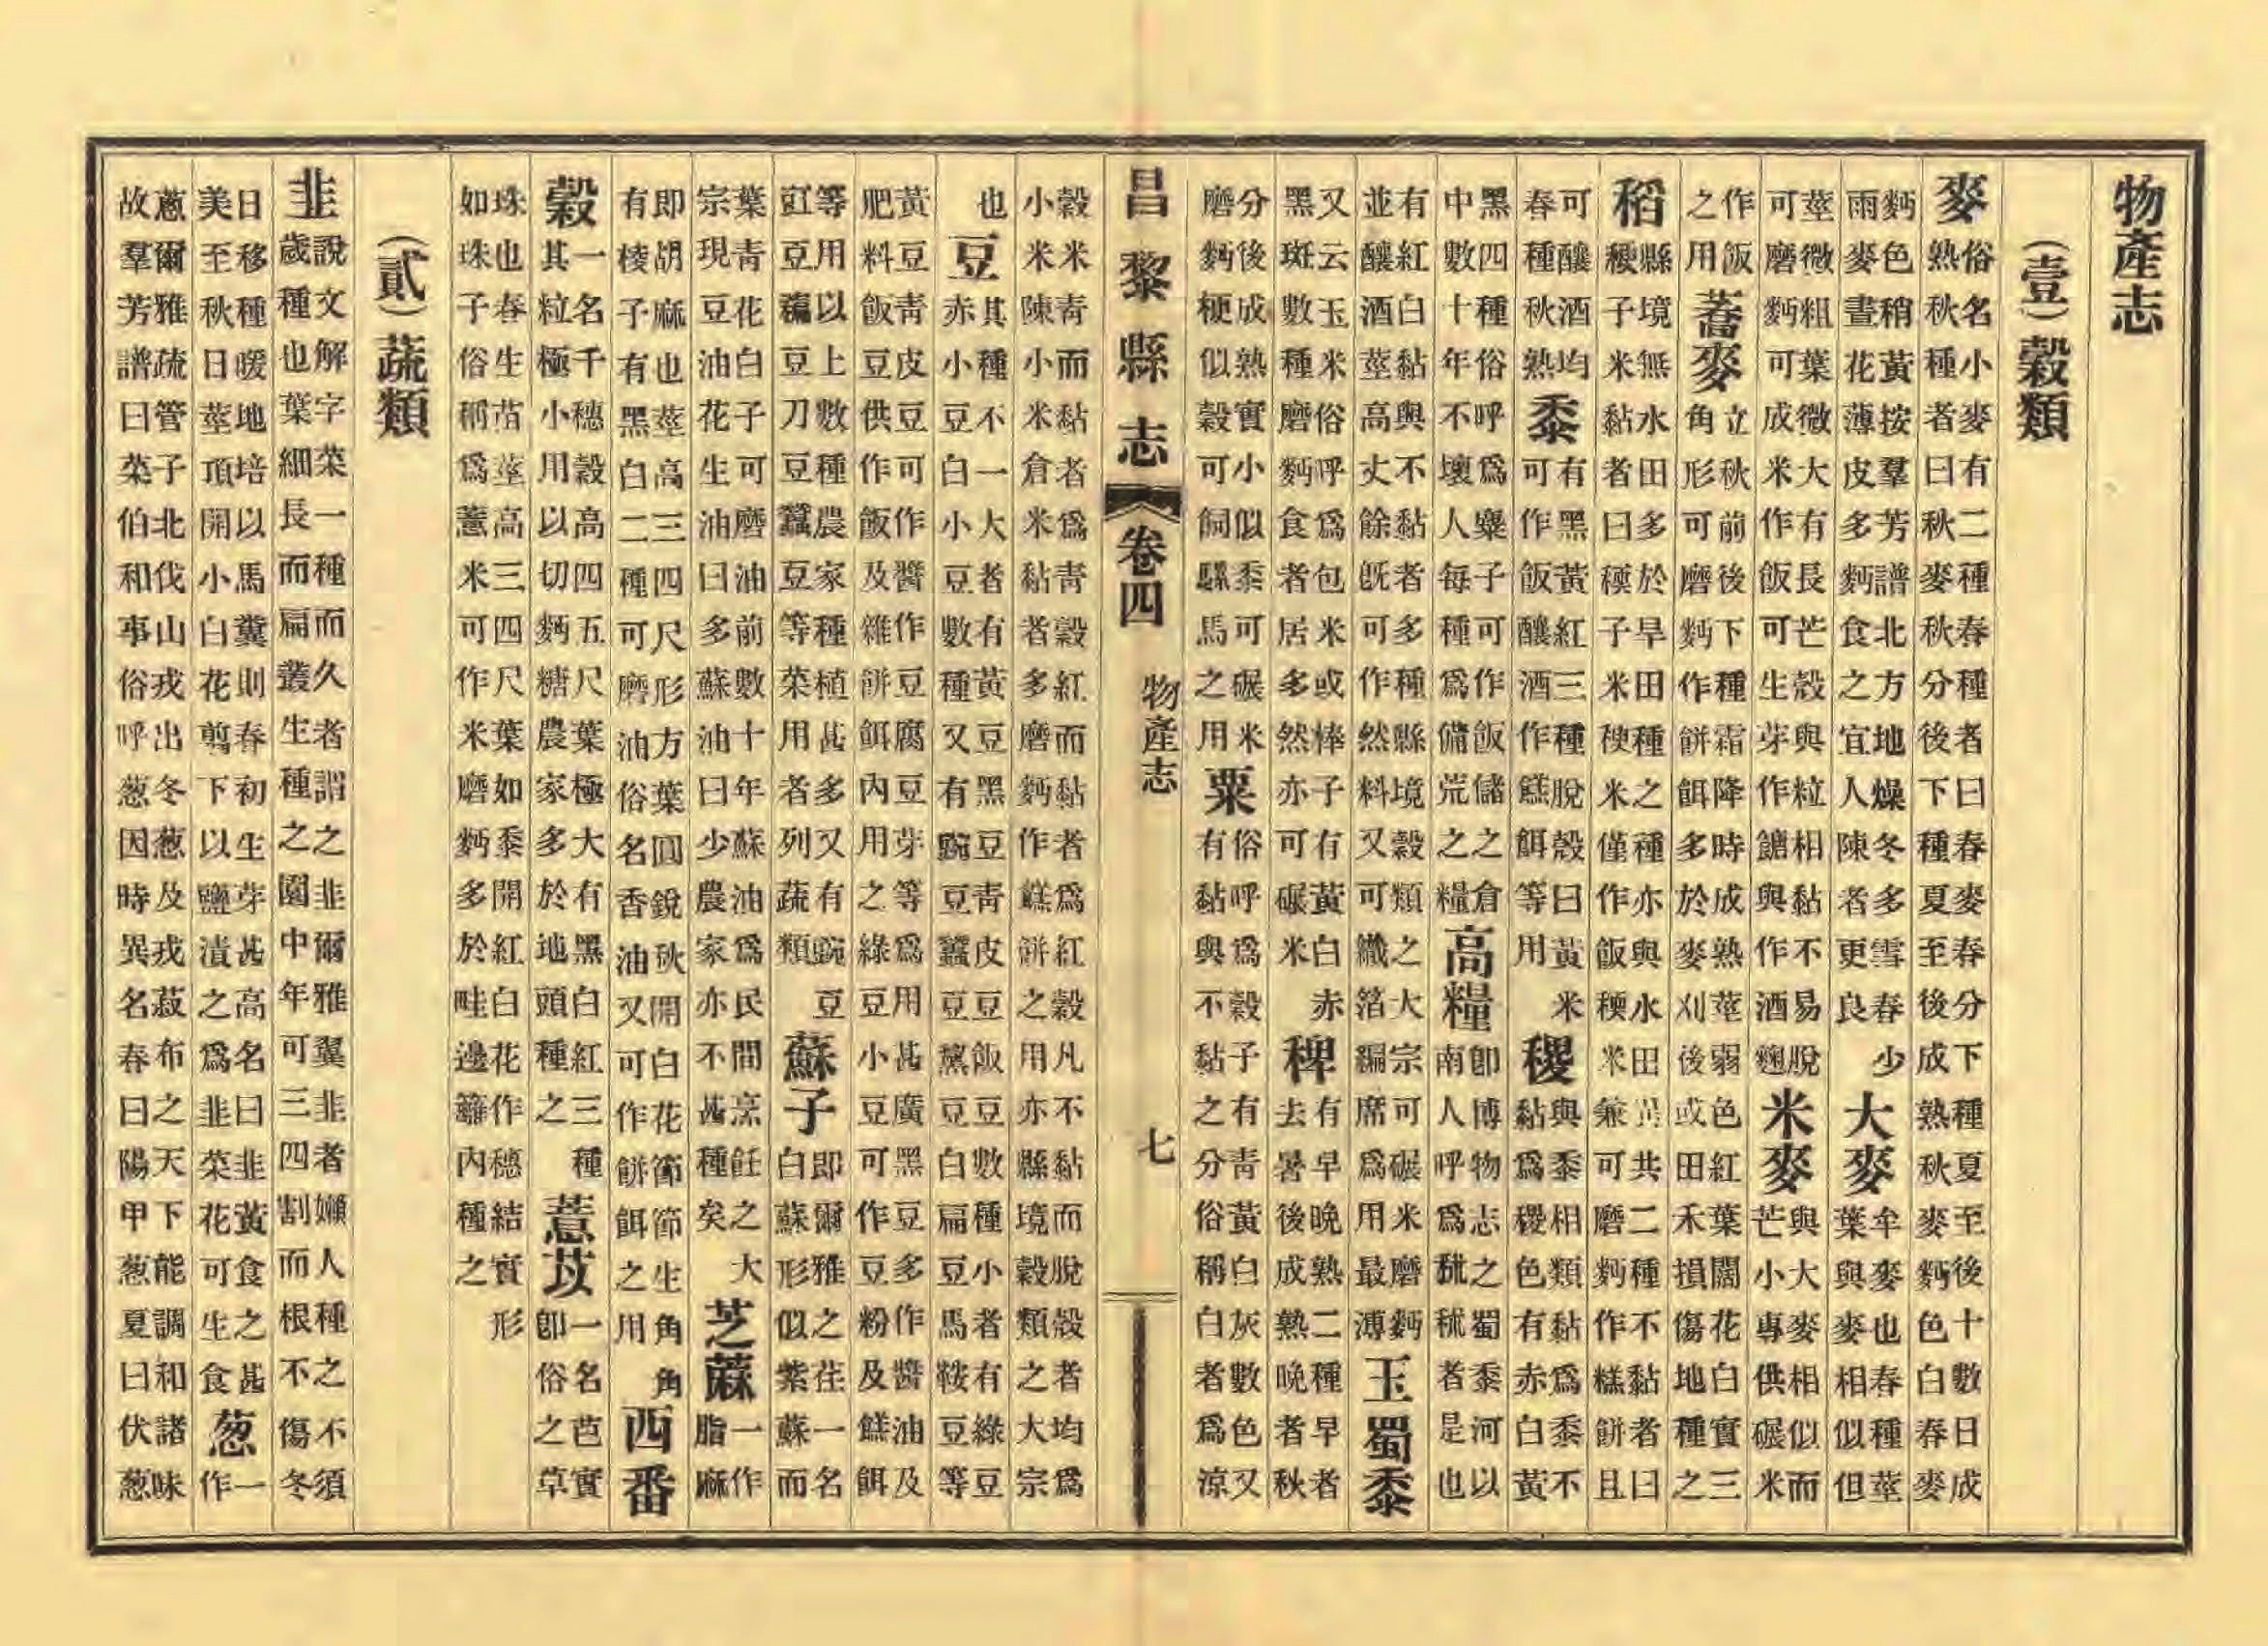 物產志
（壹）穀類
麥
俗名小麥有二種春種者曰春麥春分下種夏至後十數日成
熟秋種者曰秋麥秋分後下種夏至後成熟秋麥麪色白春麥
麪色稍黃按羣芳譜北方地燥冬多雪春少
雨麥晝花薄皮多麪食之宜人陳者更良
大麥
牟麥也春種莖
葉與麥相似但
莖微粗葉微大有長芒殻與粒相黏不易脫
可磨麪可成米作飯可生芽作餹與作酒麯
米麥
與大麥相似而
芒小專供碾米
作飯
之用
蕎麥
立秋前後下種霜降時成熟莖弱色紅葉闊花白實三
角形可磨麪作餅餌多於麥刈後或田禾損傷地種之
稻
縣境無水田多於旱田種之種亦與水田異共二種不黏者曰
稉子米黏者曰稬子米稉米僅作飯稬米兼可磨麪作糕餅且
可釀酒均
春種秋熟
黍
有黑黃紅三種脫殻曰黃米
可作飯釀酒作餻餌等用
稷
與黍相類黏爲黍不
黏爲稷色有赤白黃
黑四種俗呼爲子可作飯儲之倉
中數十年不壞人每種爲備荒之糧
高糧
即博物志之蜀黍河以
南人呼爲秫秫者是也
有紅白黏與不黏者多種縣境穀類之大宗可碾米磨麪
並釀酒莖高丈餘旣可作然料又可織箔編席爲用最溥
玉蜀黍
又云玉米俗呼爲包米或棒子有黃白赤
黑斑數種磨麪食者居多然亦可碾米
稗
有早晚熟二種早者
去暑後成熟晚者秋
分後成熟實小似黍可碾米
磨麪梗似穀可飼騾馬之用
粟
俗呼爲穀子有靑黃白灰數色又
有黏與不黏之分俗稱白者爲涼
昌黎縣志 卷四 物產志 七
穀米靑而黏者爲靑穀紅而黏者爲紅穀凡不黏而脫殻者均爲
小米陳小米倉米黏者多磨麪作糕餅之用亦縣境穀類之大宗
也
豆
其種不一大者有黃豆黑豆靑皮豆飯豆數種小者有綠豆
赤小豆白小豆數種又有豌豆蠶豆黧豆白扁豆馬鞍豆等
黃豆靑皮豆可作醬作豆腐豆芽等爲用甚廣黑豆多作醬油及
肥料飯豆供作飯及雜餅餌內用之綠豆小豆可作豆粉及餻餌
等用以上數種農家種植甚多又有豌豆
豇豆豆刀豆蠶豆等菜用者列蔬類
蘇子
即爾雅之荏一名
白蘇形似紫蘇而
葉靑花白子可磨油前數十年蘇油爲民間烹飪之大
宗現豆油花生油曰多蘇油曰少農家亦不甚種矣
芝蔴
一作
脂麻
即胡麻也莖高三四尺形方葉圓銳秋開白花節節生角角
有棱子有黑白二種可磨油俗名香油又可作餅餌之用
西番
穀
一名千穗穀高四五尺葉極大有黑白紅三種
其粒極小用以切麪糖農家多於地頭種之
薏苡
一名芭實
即俗之草
珠也春生苗莖高三四尺葉如黍開紅白花作穗結實形
如珠珠子俗稱爲薏米可作米磨麪多於畦邊籬內種之
（貳）蔬類
韭
說文解字菜一種而久者謂之韭爾雅翼韭者嬾人種之不須
歲種也葉細長而扁叢生種之園中年可三四割而根不傷冬
日移種暖地培以馬糞則春初生芽甚高名曰韭黃食之甚
美至秋日莖頂開小白花剪下以鹽漬之爲韭菜花可生食
葱
一
作
蔥爾雅疏管子北伐山戎出冬葱及戎菽布之天下能調和諸味
故羣芳譜曰菜伯和事俗呼葱因時異名春曰陽甲葱夏曰伏葱